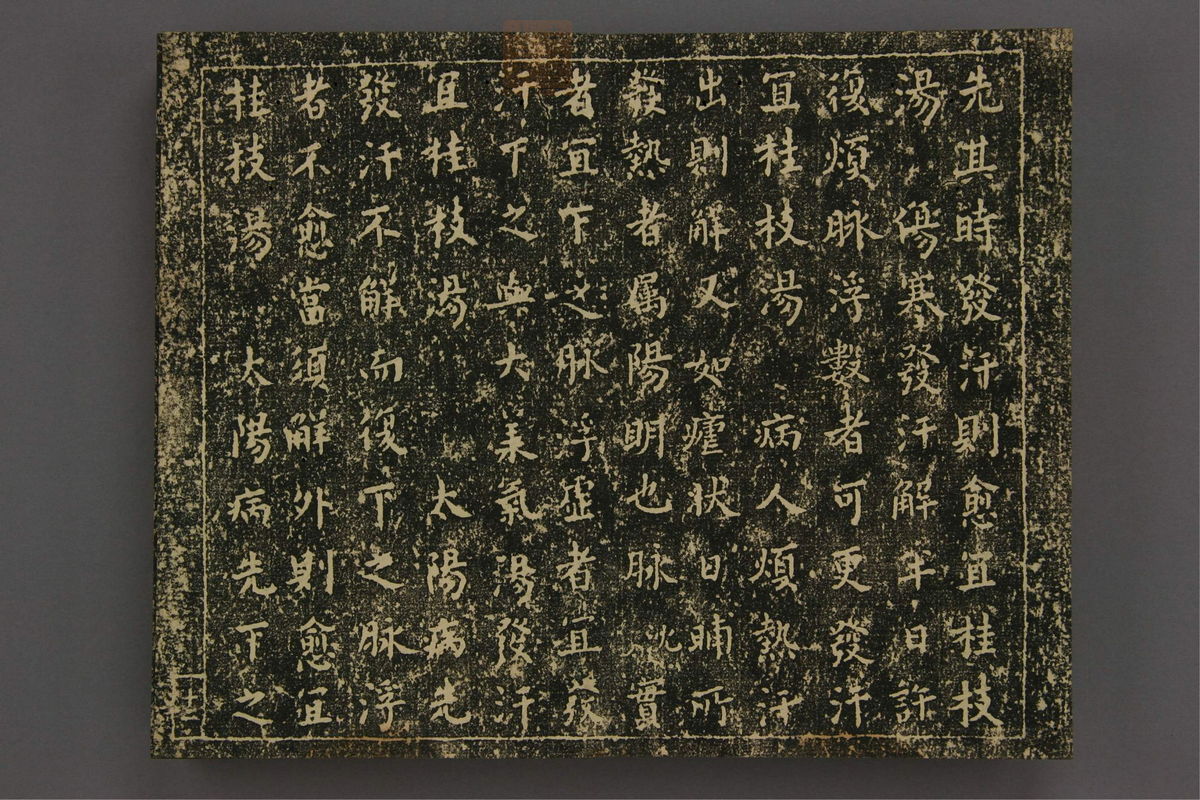 先其時發汗則愈宜桂枝
湯　傷寒發汗解半日許
復煩脉浮數者可更發汗
宜桂枝湯　病人煩熱汗
出則解又如瘧狀日晡所
發熱者屬陽明也脉沈實
者宜下之脉浮虛者宜發
汗下之與大承氣湯發汗
宜桂枝湯　太陽病先
發汗不解而復下之脉浮
者不愈當須解外則愈宜
桂枝湯　太陽病先下之